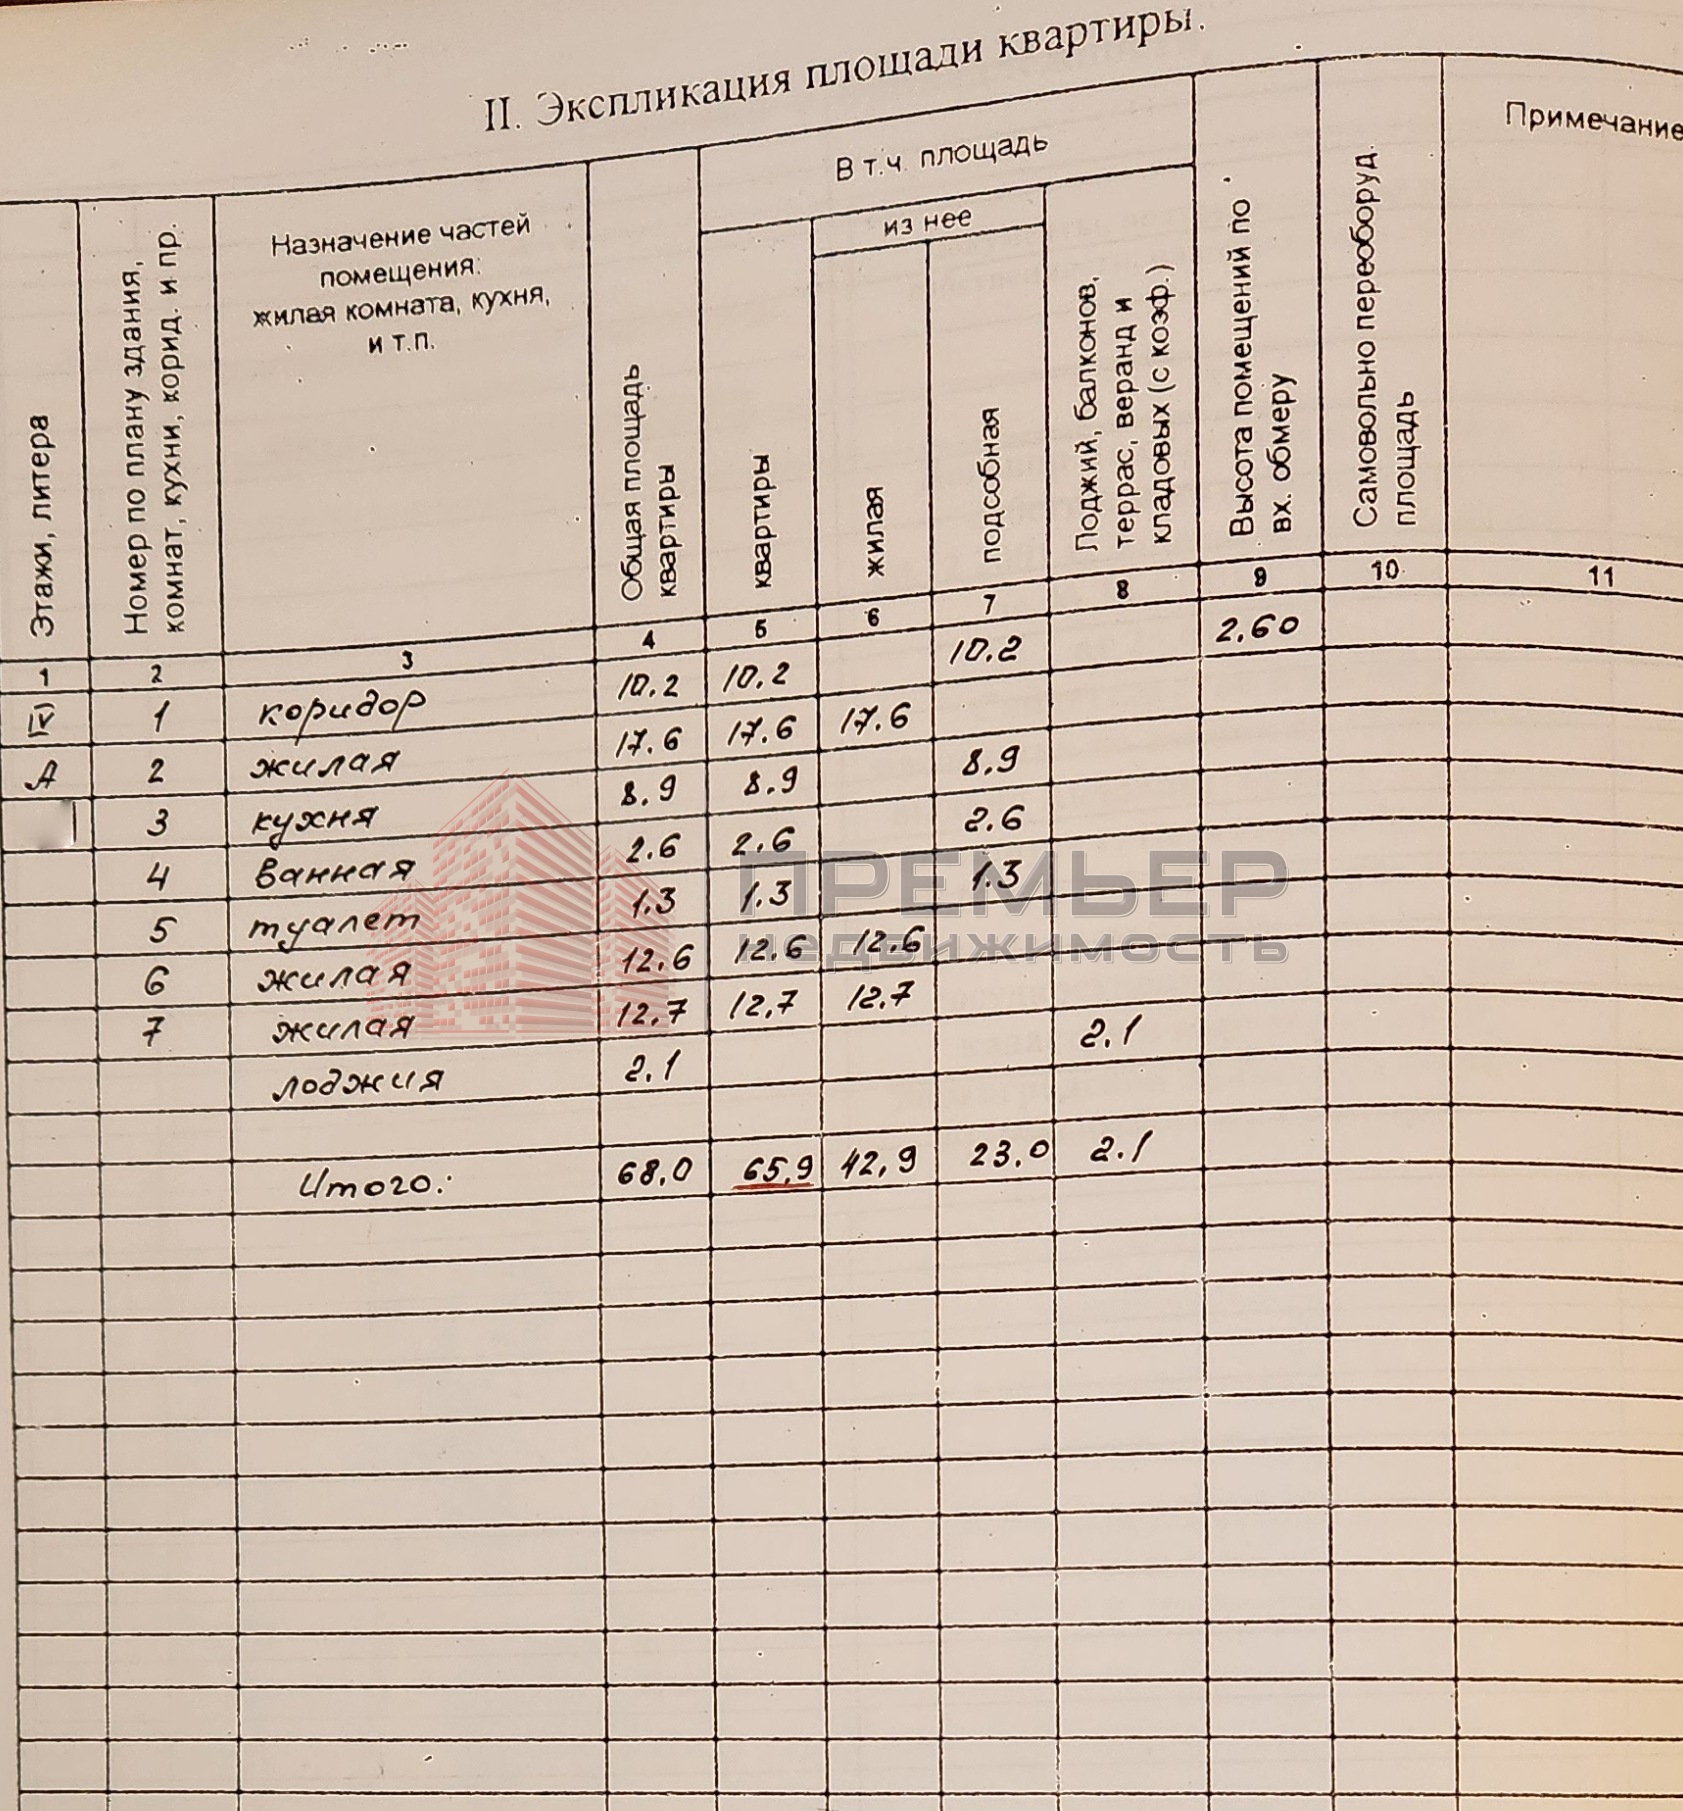 II. Экспликация площади квартиры.
Этажи, литера
Номер по плану здания,
комнат, кухни, корид. и пр.
Назначение частей
помещения:
жилая комната, кухня,
и т.п.
Общая площадь
квартиры
В т.ч. площадь
квартиры
из нее
жилая
подсобная
Лоджий, балконов,
террас, веранд и
кладовых (с коэф.)
Высота помещений по
вх. обмеру
Самовольно переоборуд.
площадь
Примечание
1 2 3 4 5 6 7 8 9 10 11
IV 1 коридор 10.2 10.2 10.2 2.60
А 2 жилая 17.6 17.6 17.6
3 кухня 8.9 8.9 8.9
4 ванная 2.6 2.6 2.6
5 туалет 1.3 1.3 1.3
6 жилая 12.6 12.6 12.6
7 жилая 12.7 12.7 12.7
лоджия 2.1 2.1
Итого: 68,0 65,9 42,9 23,0 2.1
ПРЕМЬЕР
недвижимость